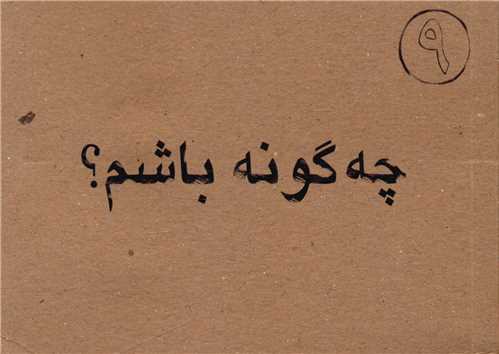 ۹
چه‌گونه باشم؟